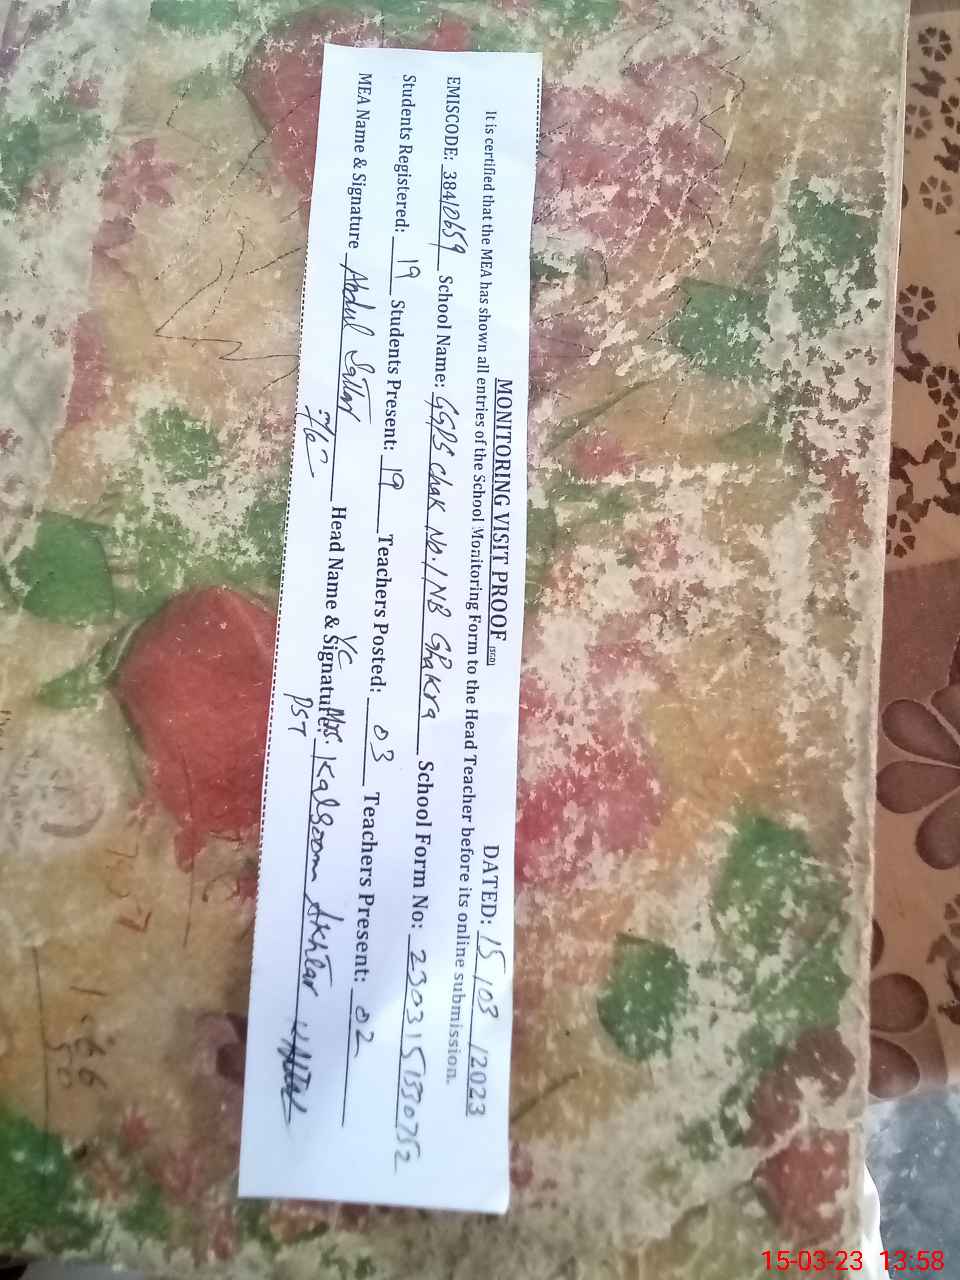 MONITORING VISIT PROOF (SGD) DATED: 15/03/2023
It is certified that the MEA has shown all entries of the School Monitoring Form to the Head Teacher before its online submission.
EMISCODE: 38410659 School Name: GGPS Chak No.1 NB Shakra School Form No: 2303151330752
Students Registered: 19 Students Present: 19 Teachers Posted: 03 Teachers Present: 02
MEA Name & Signature Abdul Sattar Head Name & Signature: Mrs. Kalsoom Akhtar
PST
15-03-23 13:58